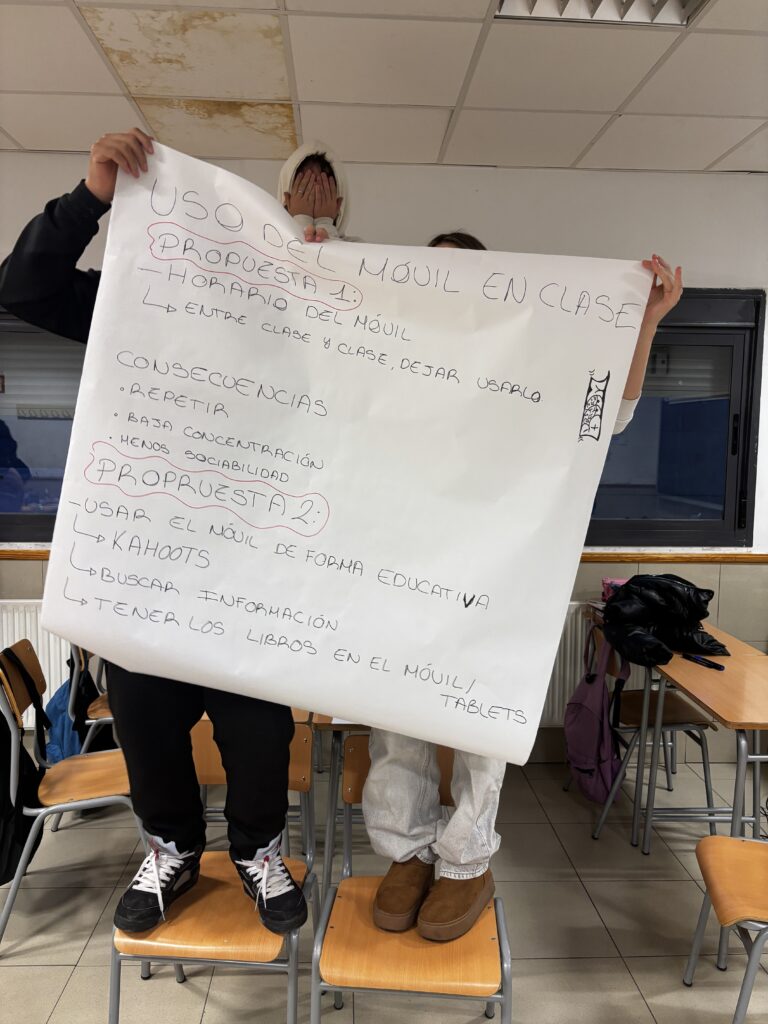 USO DEL MÓVIL EN CLASE
PROPUESTA 1:
- HORARIO DEL MÓVIL
↳ ENTRE CLASE Y CLASE, DEJAR USARLO
CONSECUENCIAS
• REPETIR
• BAJA CONCENTRACIÓN
• MENOS SOCIABILIDAD
PROPRUESTA 2:
- USAR EL MÓVIL DE FORMA EDUCATIVA
↳ KAHOOTS
↳ BUSCAR INFORMACIÓN
↳ TENER LOS LIBROS EN EL MÓVIL/
TABLETS